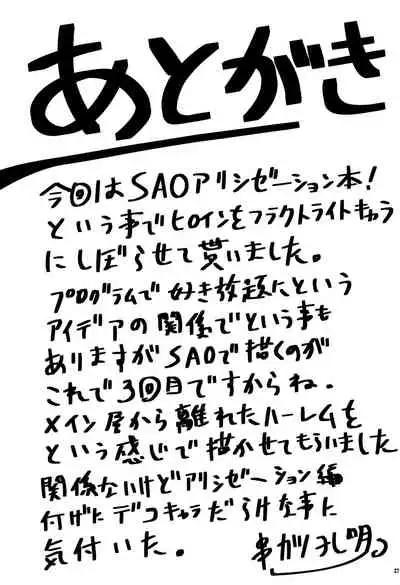 あとがき
今回はSAOアリシゼーション本!
という事でヒロインをフラクトライトキャラ
にしぼらせて貰いました。
プログラムで好き放題にという
アイデアの関係でという事も
ありますがSAOで描くのが
これで3回目ですからね。
メイン層から離れたハーレムを
という感じで描かせてもらいました
関係ないけどアリシゼーション編
付げにデコキャラだらけな事に
気付いた。